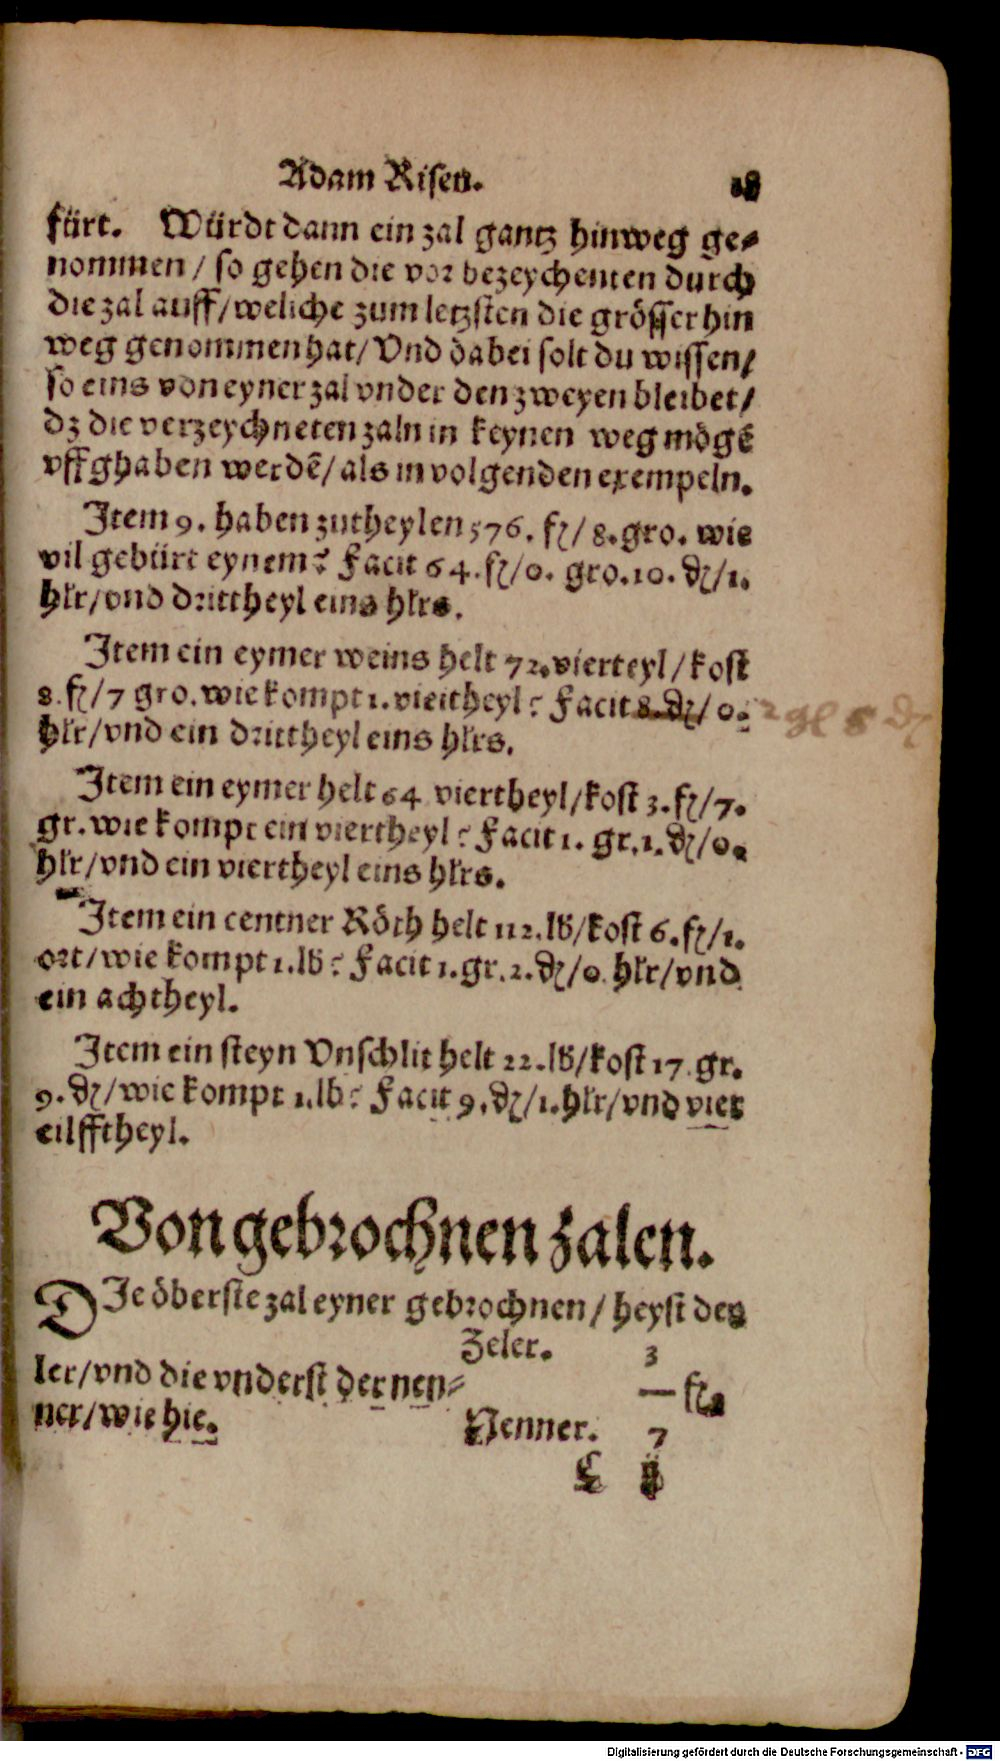 Adam Risen. 18
fürt. Würdt dann ein zal gantz hinweg ge-
nommen / so gehen die vor bezeychenten durch
die zal auff/weliche zum letzsten die grösser hin
weg genommen hat/ Vnd dabei solt du wissen/
so eins von eyner zal vnder den zweyen bleibet/
dz die verzeychneten zaln in keynen weg mögē
vffghaben werdē/ als in volgenden exempeln.
Item 9. haben zutheylen 576. fl/ 8. gro. wie
vil gebürt eynem? Facit 64. fl/0. gro. 10. d/1.
hlr/vnd drittheyl eins hlrs.
Item ein eymer weins helt 72. vierteyl/kost
8. fl/7 gro. wie kompt 1. viertheyl? Facit 8. d/0. 2 gl 5 d
hlr/vnd ein drittheyl eins hlrs.
Item ein eymer helt 64 viertheyl/kost 3. fl/7.
gr. wie kompt ein viertheyl? Facit 1. gr. 1. d/0.
hlr/vnd ein viertheyl eins hlrs.
Item ein centner Röth helt 112. lb/kost 6. fl/1.
ort/wie kompt 1. lb? Facit 1. gr. 2. d/0 hlr/vnd
ein achtheyl.
Item ein steyn Vnschlit helt 22. lb/kost 17. gr.
9. d/wie kompt 1. lb? Facit 9. d/1. hlr/vnd vier
eilfftheyl.
Von gebrochnen zalen.
DIe öberste zal eyner gebrochnen / heyst der
Zeler. 3
ler/vnd die vnderst der nen- — fl.
ner/wie hie. Nenner. 7
C ij
Digitalisierung gefördert durch die Deutsche Forschungsgemeinschaft - DFG